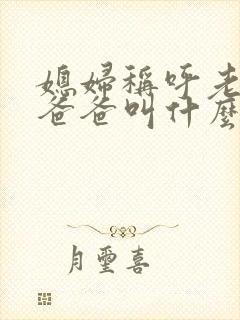 媳婦稱呼老
爸爸叫什麼
月璽喜